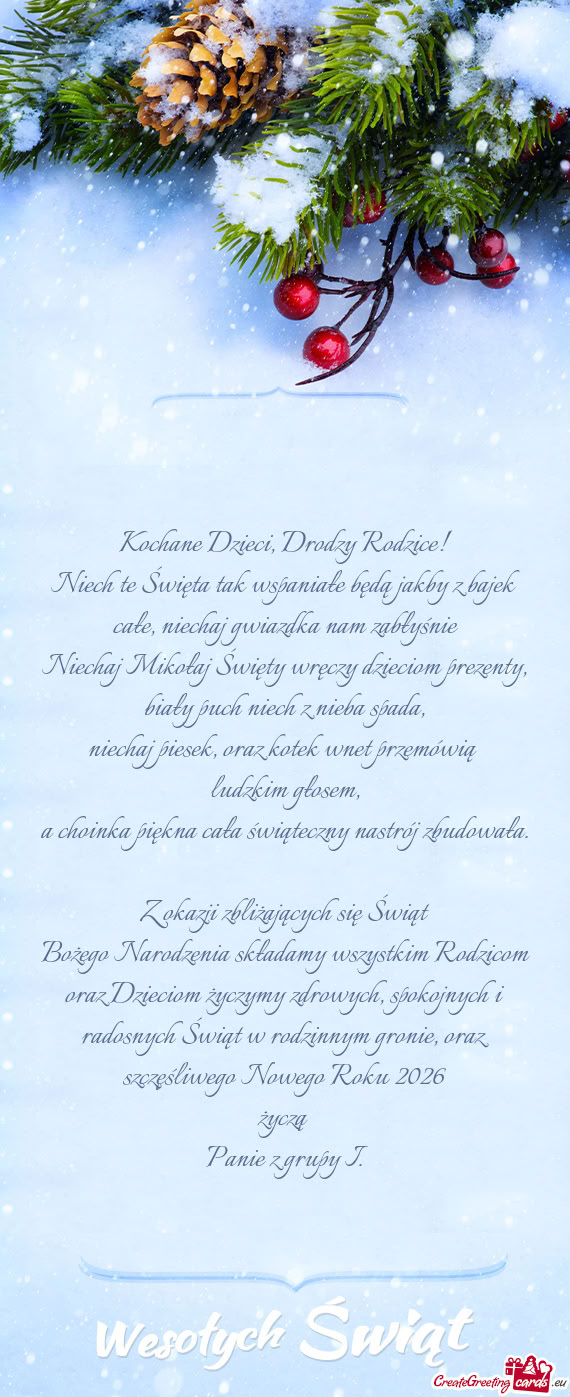 Kochane Dzieci, Drodzy Rodzice!
Niech te Święta tak wspaniałe będą jakby z bajek
całe, niechaj gwiazdka nam zabłyśnie
Niechaj Mikołaj Święty wręczy dzieciom prezenty,
biały puch niech z nieba spada,
niechaj piesek, oraz kotek wnet przemówią
ludzkim głosem,
a choinka piękna cała świąteczny nastrój zbudowała.
Z okazji zbliżających się Świąt
Bożego Narodzenia składamy wszystkim Rodzicom
oraz Dzieciom życzymy zdrowych, spokojnych i
radosnych Świąt w rodzinnym gronie, oraz
szczęśliwego Nowego Roku 2026
życzą
Panie z grupy I.
Wesołych Świąt
CreateGreeting cards .eu